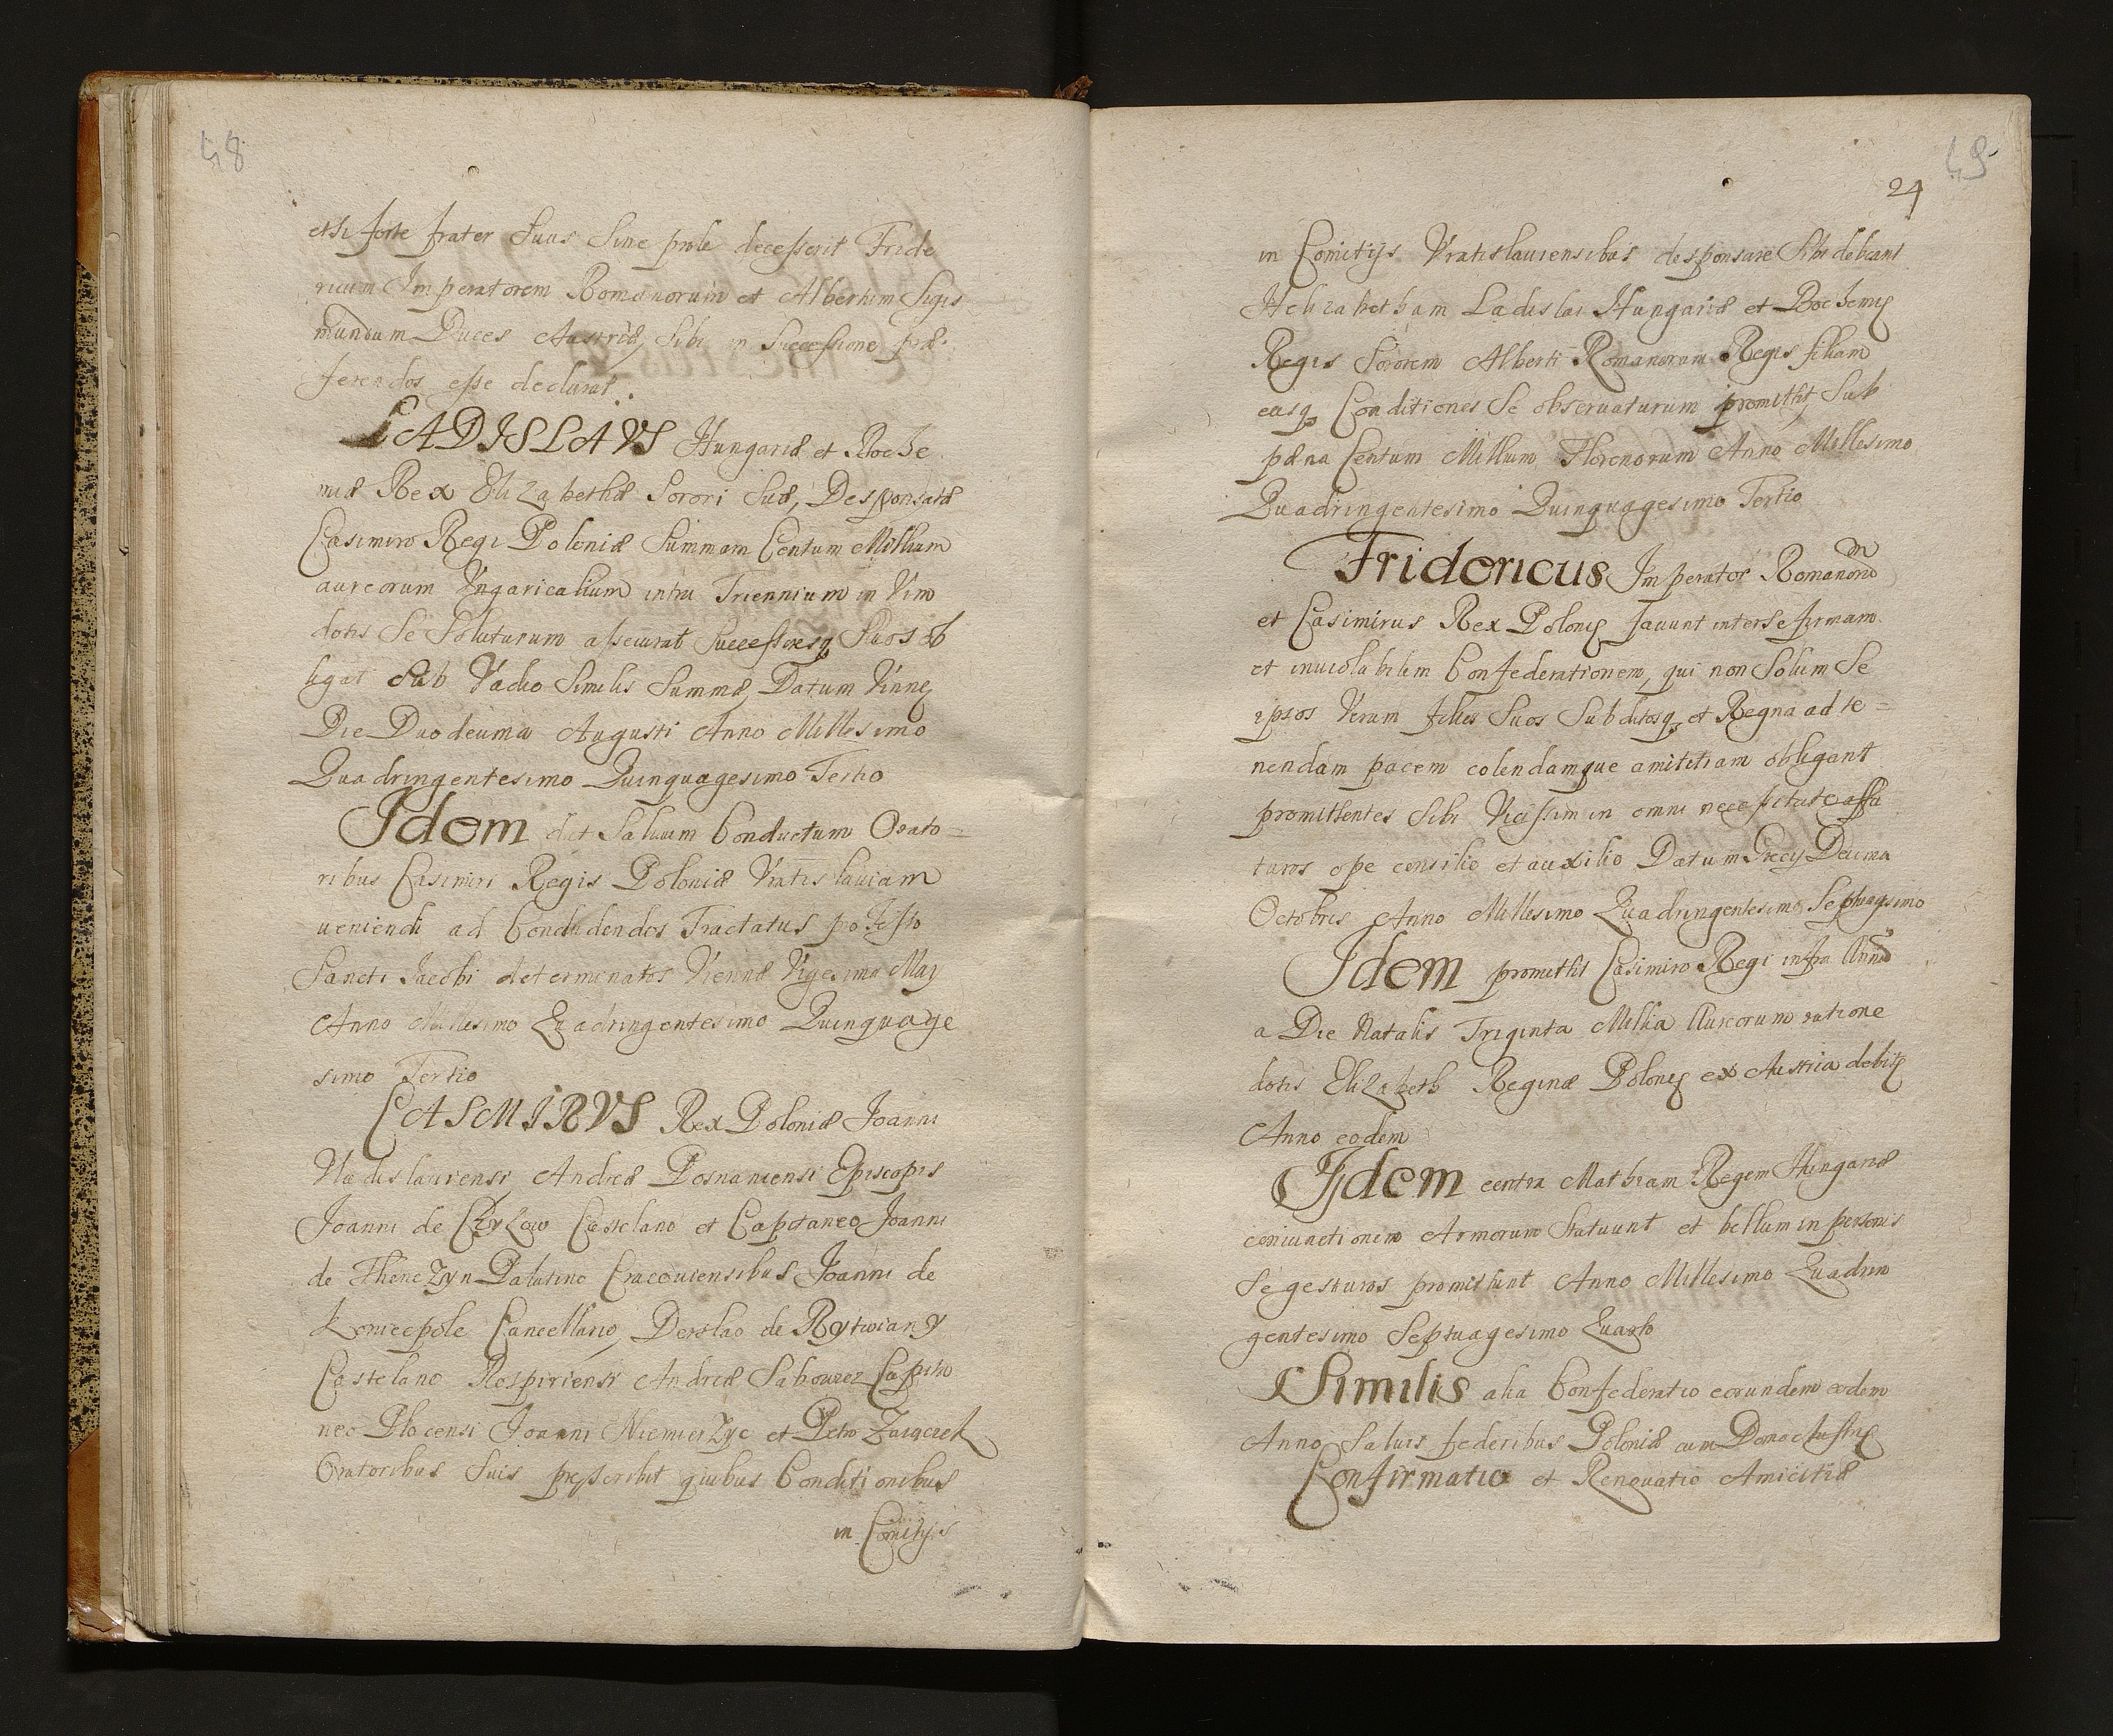 48
et si forte frater Suus Sine prole decesserit Fride
ricum Imperatorem Romanorum et Albertum Sigis
mundum Duces Austriæ, Sibi in Successione præ
ferendos esse declarat.
LADISLAVS Hungariæ et Boche
miæ Rex Elizabethæ Sorori Suæ, Desponsatæ
Casimiro Regi Poloniæ Summam Centum Millium
aureorum Vngaricalium intra Triennium in Vim
dotis Se Soluturum assecurat Successoresq Suos ob
ligat Sub Vadio Similis Summæ, Datum Vinnę
Die Duodecima Augusti Anno Millesimo
Quadringentesimo Quinquagesimo Tertio
Idem dat Saluum Conductum Orato=
ribus Casimiri Regis Poloniæ Vratislauiam
ueniendi ad Concludendos Tractatus pro festo
Sancti Jacobi determinatos Viennæ Vigesima Maij
Anno Millesimo Quadringentesimo Quinquage
simo Tertio
CASMIRVS Rex Poloniæ Joanni
Vladislauiensi, Andreæ Posnaniensi Episcopis
Joanni de Czyzow Castelano et Capitaneo Joanni
de Thenczyn Palatino Cracouiensibus Joanni de
Koniecpole Cancellario, Derslao de Rytwiany
Castelano Rospiriensi Andreæ Capita
neo Plocensi Joanni Niemierzyc et Petro
Oratoribus Suis prescribit quibus Conditionibus
in Comitijs
49
24
in Comitijs Vratislauiensibus desponsare Sibi debeant
Helizabetham Ladislai Hungariæ et Bochemię
Regis Sororem Alberti Romanorum Regis filiam
easq Conditiones Se obseruaturum promittit, Sub
pæna Centum Millium Florenorum Anno Millesimo
Quadringentesimo Quinquagesimo Tertio
Fridericus Imperator Romanorum
et Casimirus Rex Polonię fauunt inter Se firmam
et inuiolabilem Confederationem, qui non Solum Se
ipsos Verum filios Suos Subditosq et Regna ad te=
nendam pacem colendamque amicitiam obligant
promittentes Sibi Vicissim in omni necessitate affu
turos ope consilio et auxilio Datum Grecij Decima
Octobris Anno Millesimo Quadringentesimo Septuagesimo
Idem promittit Casimiro Regi infra Annū
a Die Natalis Triginta Millia Aureorum ratione
dotis Elizabeth Reginæ Polonię ex Austria debitę
Anno eodem
Idem contra Mathiam Regem Hungariæ
coniunctionem Armorum Statuunt et bellum in personis
Se gesturos promittunt Anno Millesimo Quadrin
gentesimo Septuagesimo Quarto
Similis alia Confederatio eorundem eodem
Anno Saluis federibus Poloniæ cum Domo Austrię
Confirmatio et Renouatio Amicitiæ